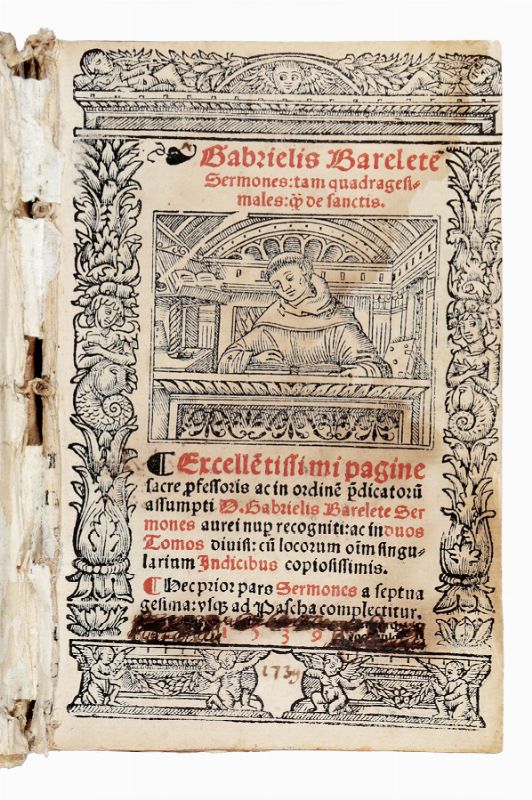 Gabrielis Bareletē
Sermones: tam quadragesi-
males: q̄ꝫ de sanctis.
¶ Excellētissimi pagine
sacre ꝓfessoris ac in ordinē p̄dicatorū
assumpti D. Gabrielis Barelete Ser
mones aurei nuꝑ recogniti: ac in duos
Tomos diuisi: cū locorum oīm singu-
larium Indicibus copiosissimis.
¶ Hec prior pars Sermones a septua
gesima: vsqꝫ ad Pascha complectitur.
1539
1739